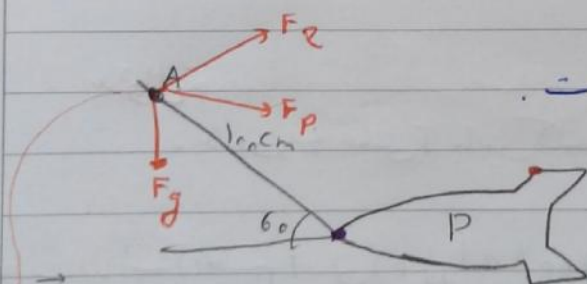 A
F P
100cm
F g
60
P